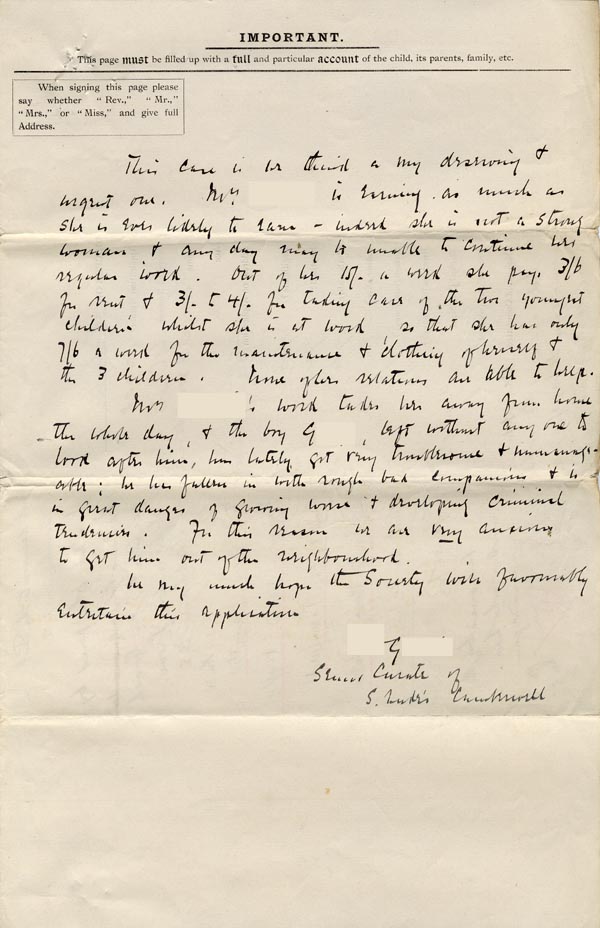 IMPORTANT.
This page must be filled up with a full and particular account of the child, its parents, family, etc.
When signing this page please
say whether "Rev.," "Mr.,"
"Mrs.," or "Miss," and give full
Address.
This case is we think a very deserving &
urgent one. Mrs is earning as much as
she is ever likely to earn – indeed she is not a strong
woman & any day may be unable to continue her
regular work. Out of her 15/- a week she pays 3/6
for rent & 3/- to 4/- for taking care of the two youngest
children whilst she is at work, so that she has only
7/6 a week for the maintenance & clothing of herself &
the 3 children. None of her relations are able to help.
Mrs 's work takes her away from home
the whole day, & the boy G , left without any one to
look after him, has lately got very troublesome & unmanage-
able; he has fallen in with rough bad companions & is
in great danger of growing worse & developing criminal
tendencies. For this reason we are very anxious
to get him out of the neighbourhood.
We very much hope the Society will favourably
entertain this application
G
Senior Curate of
S. Luke's Camberwell